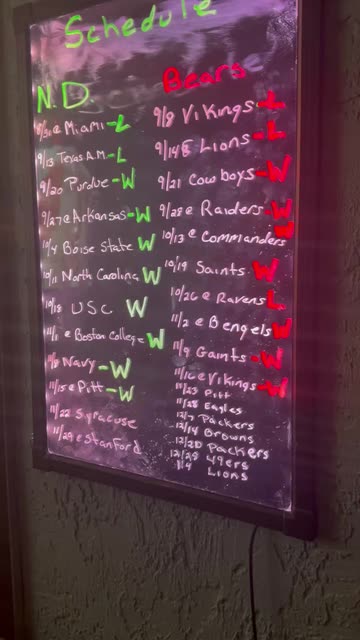 Schedule
N.D.
8/31 @ Miami-L
9/13 Texas A.M-L
9/20 Purdue-W
9/27 @ Arkansas-W
10/4 Boise State W
10/11 North Carolina W
10/18 USC W
11/1 @ Boston College W
11/8 Navy-W
11/15 @ Pitt-W
11/22 Syracuse
11/29 @ Stanford
Bears
9/8 Vikings-L
9/14 @ Lions-L
9/21 Cowboys-W
9/28 @ Raiders-W
10/13 @ Commanders W
10/19 Saints W
10/26 @ Ravens L
11/2 @ Bengels W
11/9 Gaints-W
11/16 @ Vikings-W
11/23 Pitt
11/28 Eagles
12/7 Packers
12/14 Browns
12/20 Packers
12/28 49ers
1/4 Lions